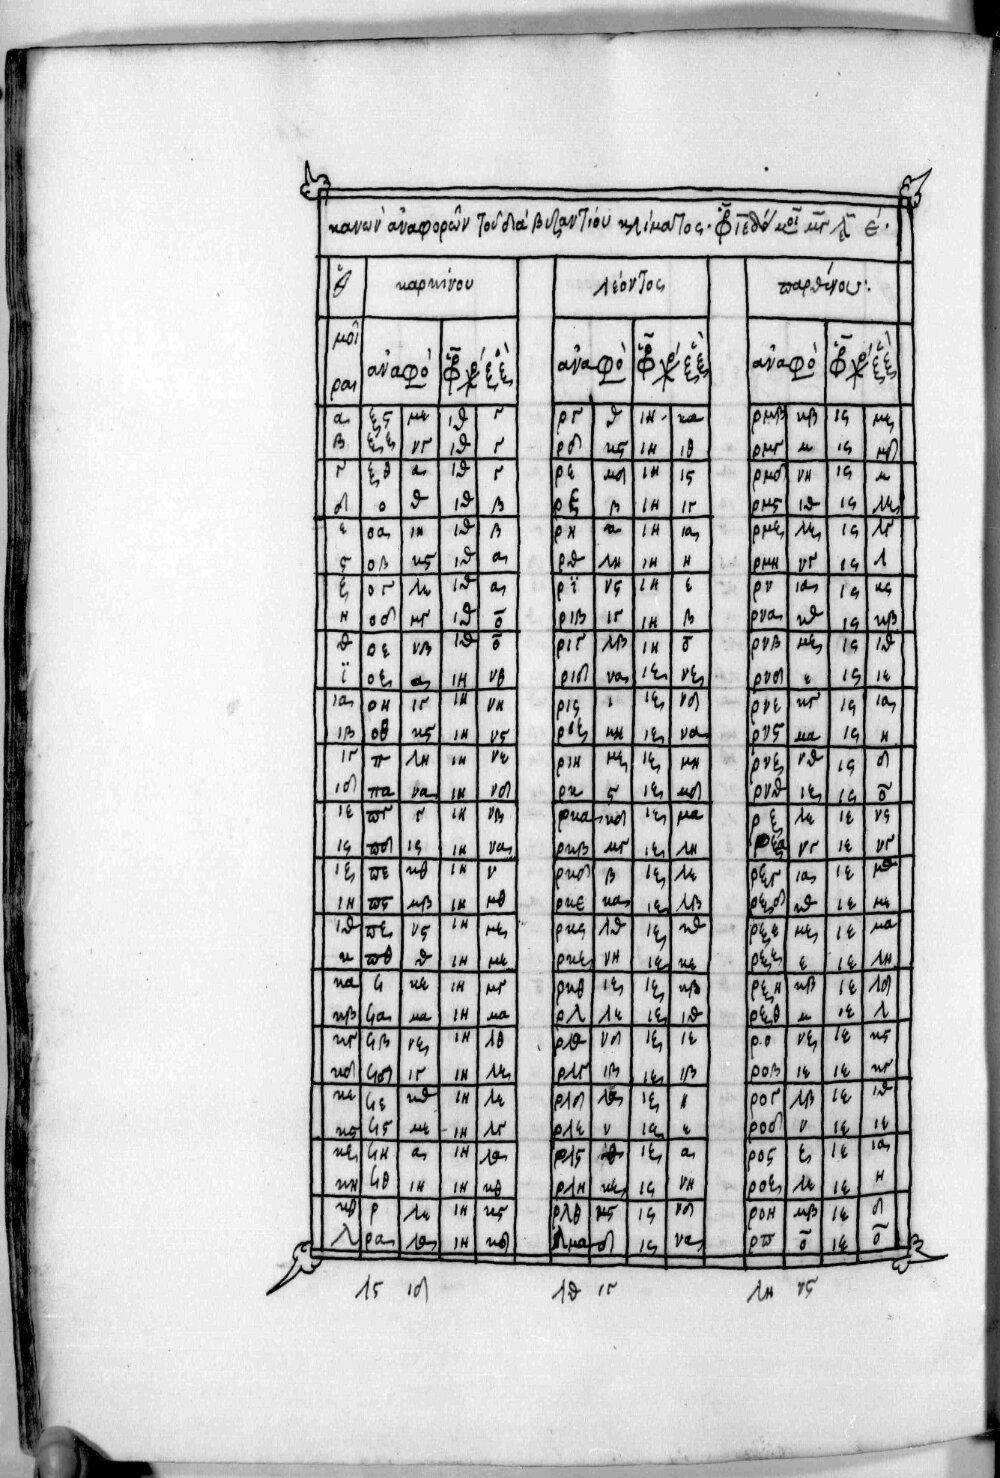 κανων ἀναφορῶν τοῦ διὰ βυζαντίου κλίματος· ιε μοῖ μγ ε΄·
καρκίνου λέοντος παρθένου·
μοῖραι ἀναφὸ ἀναφὸ ἀναφὸ
α ξς με ιθ γ ργ θ ιη κα ρμβ κβ ις μζ
β ξζ νγ ιθ γ ρδ κς ιη ιθ ρμγ μ ις μδ
γ ξθ α ιθ γ ρε μδ ιη ις ρμδ νη ις μ
δ ο θ ιθ β ρζ β ιη ιγ ρμς ιθ ις λζ
ε οα ιη ιθ β ρη κ ιη ια ρμζ λζ ις λγ
ς οβ κς ιθ α ρθ λη ιη η ρμη νγ ις λ
ζ ογ λε ιθ α ρϊ νς ιη ε ρν ια ις κς
η οδ μγ ιθ ο̄ ριβ ιγ ιη β ρνα κθ ις κβ
θ οε νβ ιθ ο̄ ριγ λβ ιη ο̄ ρνβ μζ ις ιθ
ϊ οζ α ιη νθ ριδ να ιζ νζ ρνδ ε ις ιε
ια οη ιγ ιη νη ρις ι ιζ νδ ρνε κγ ις ια
ιβ οθ κς ιη νς ριζ κη ιζ να ρνς μα ις η
ιγ π λη ιη νε ριη μζ ιζ μη ρνζ νθ ις δ
ιδ πα να ιη νδ ρκ ς ιζ μδ ρνθ ιζ ις ο̄
ιε πγ γ ιη νβ ρκα κδ ιζ μα ρξ λε ιε νς
ις πδ ις ιη να ρκβ μγ ιζ λη ρξα νγ ιε νγ
ιζ πε κθ ιη ν ρκδ β ιζ λε ρξγ ια ιε μθ
ιη πς μβ ιη μθ ρκε κα ιζ λβ ρξδ κθ ιε με
ιθ πζ νς ιη μζ ρκς λθ ιζ κθ ρξε μζ ιε μα
κ πθ θ ιη με ρκζ νη ιζ κε ρξζ ε ιε λη
κα ϟ κε ιη μγ ρκθ ιζ ιζ κβ ρξη κβ ιε λδ
κβ ϟα μα ιη μα ρλ λε ιζ ιθ ρξθ μ ιε λ
κγ ϟβ νζ ιη λθ ρλα νδ ιζ ιε ρο νζ ιε κς
κδ ϟδ ιγ ιη λζ ρλγ ιβ ιζ ιβ ροβ ιε ιε κγ
κε ϟε κθ ιη λε ρλδ λα ιζ η ρογ λβ ιε ιθ
κς ϟς με ιη λγ ρλε ν ιζ ε ροδ ν ιε ιε
κζ ϟη α ιη λα ρλς ιζ α ρος ζ ιε ια
κη ϟθ ιη ιη κθ ρλη κζ ις νη ροζ λε ιε η
κθ ρ λε ιη κς ρλθ μς ις νδ ροη μβ ιε δ
λ ρα λα ιη κδ ρμα δ ις να ρπ ο̄ ιε ο̄
λς ιδ λθ ιγ λη νς